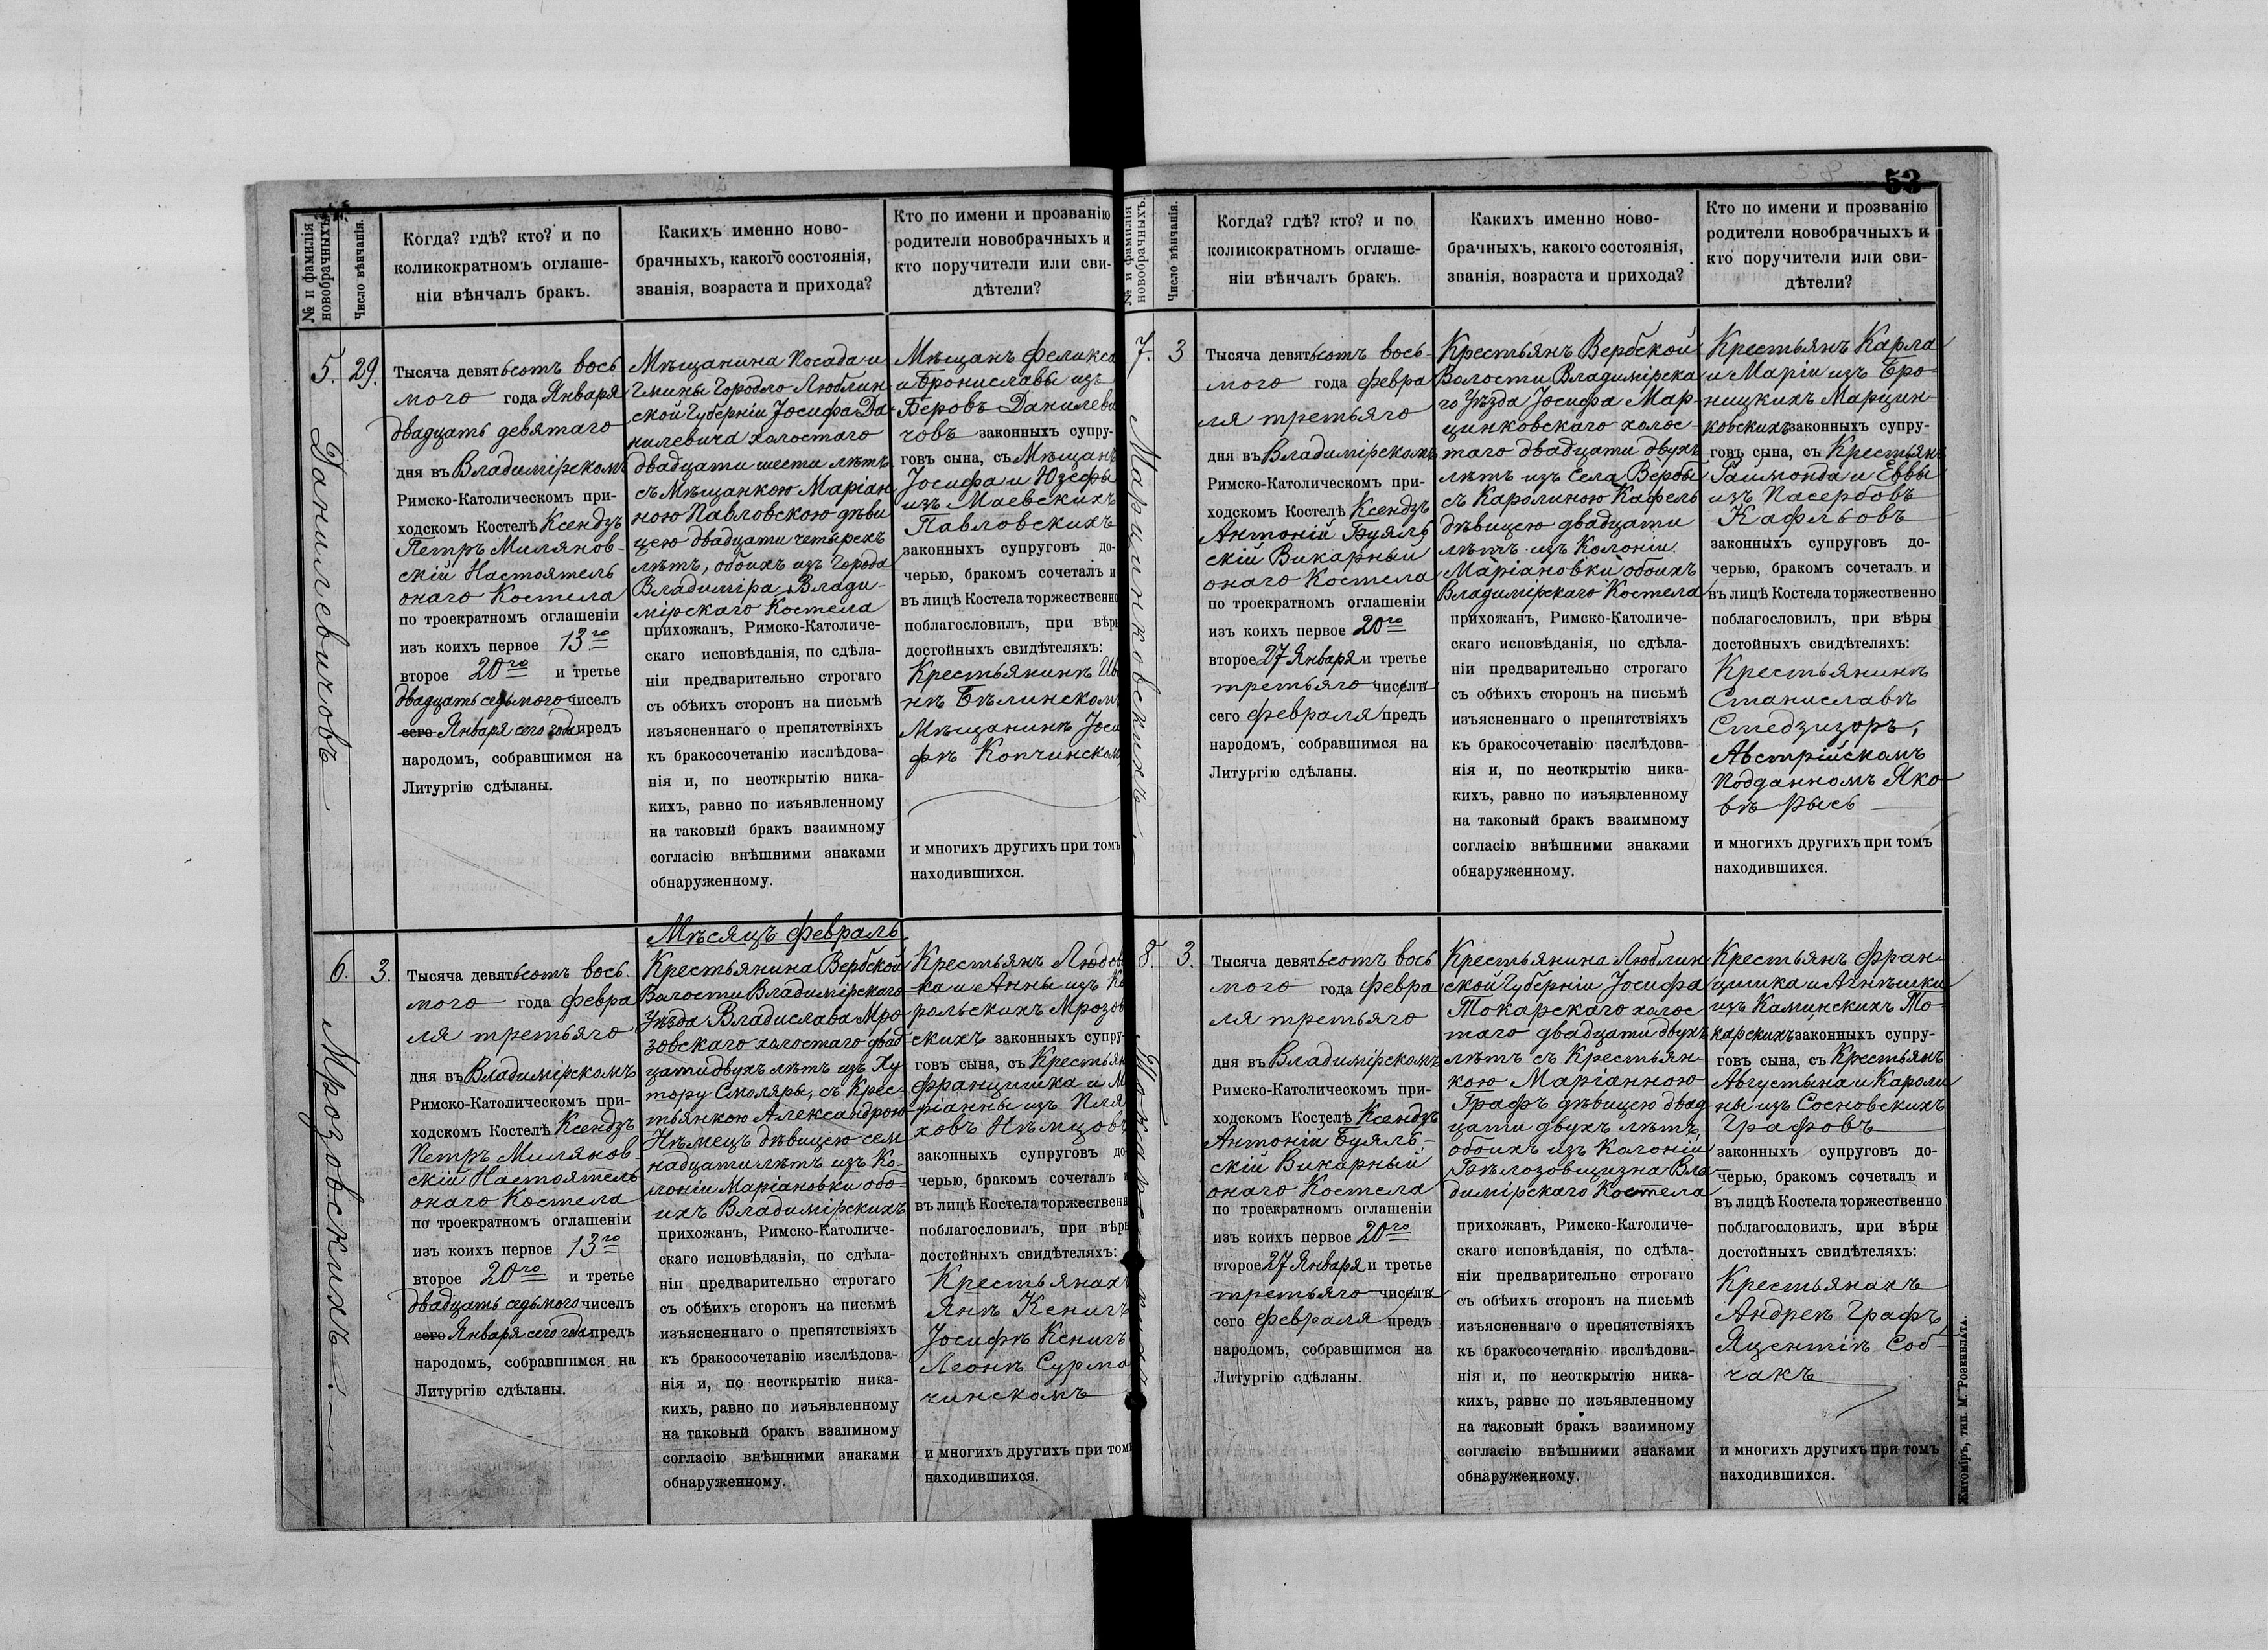 № и фамилія
новобрачныхъ.
Число вѣнчанія.
Когда? гдѣ? кто? и по
коликократномъ оглаше-
ніи вѣнчалъ бракъ.
Какихъ именно ново-
брачныхъ, какого состоянія,
званія, возраста и прихода?
Кто по имени и прозванію
родители новобрачныхъ и
кто поручители или сви-
дѣтели?
5.
Данилевичовъ
29.
Тысяча девятьсотъ вось
мого года Января
двадцать девятаго
дня въ Владимірскомъ
Римско-Католическомъ при-
ходскомъ Костелѣ Ксендзъ
Петръ Милянов-
скій Настоятель
онаго Костела
по троекратномъ оглашеніи
изъ коихъ первое 13го
второе 20го и третье
двадцать седьмого чиселъ
сего Января сего года предъ
народомъ, собравшимся на
Литургію сдѣланы.
Мѣщанина Посада и
Гмины Городло Люблин
ской Губерніи Іосифа Да-
нилевича холостаго
двадцати шести лѣтъ
съ Мѣщанкою Маріан
ною Павловскою дѣви
цею двадцати четырехъ
лѣтъ, обоихъ изъ Города
Владиміра, Влади-
мірскаго Костела
прихожанъ, Римско-Католиче-
скаго исповѣданія, по сдѣла-
ніи предварительно строгаго
съ обѣихъ сторонъ на письмѣ
изъясненнаго о препятствіяхъ
къ бракосочетанію изслѣдова-
нія и, по неоткрытію ника-
кихъ, равно по изъявленному
на таковый бракъ взаимному
согласію внѣшними знаками
обнаруженному.
Мѣщанъ Феликса
и Брониславы изъ
Беровъ Данилеви
човъ законныхъ супру-
говъ сына, съ Мѣщанъ
Іосифа и Юзефы
изъ Маевскихъ
Павловскихъ
законныхъ супруговъ до-
черью, бракомъ сочеталъ и
въ лицѣ Костела торжественно
поблагословилъ, при вѣры
достойныхъ свидѣтеляхъ:
Крестьянинѣ
нѣ Бѣлинскомъ
Мѣщанинѣ Іоси
фѣ Копчинском
и многихъ другихъ при томъ
находившихся.
Мѣсяцъ Февраль
6.
Мрозовскихъ.
3.
Тысяча девятьсотъ вось.
мого года Февра
ля третьяго
дня въ Владимірскомъ
Римско-Католическомъ при-
ходскомъ Костелѣ Ксендзъ
Петръ Милянов-
скій Настоятель
онаго Костела
по троекратномъ оглашеніи
изъ коихъ первое 13го
второе 20го и третье
двадцать седьмого чиселъ
сего Января сего года предъ
народомъ, собравшимся на
Литургію сдѣланы.
Крестьянина Вербской
Волости Владимірскаго
Уѣзда Владислава Мро
зовскаго холостаго двад-
цати двухъ лѣтъ изъ Ху
тору Смоляры, съ Крес-
тьянкою Александрою
Нѣмецъ дѣвицею сем
надцати лѣтъ изъ Ко-
лоніи Маріановки обо-
ихъ Владимірскихъ
прихожанъ, Римско-Католиче-
скаго исповѣданія, по сдѣла-
ніи предварительно строгаго
съ обѣихъ сторонъ на письмѣ
изъясненнаго о препятствіяхъ
къ бракосочетанію изслѣдова-
нія и, по неоткрытію ника-
кихъ, равно по изъявленному
на таковый бракъ взаимному
согласію внѣшними знаками
обнаруженному.
Крестьянъ Людов
ка и Анны изъ Ко
рольскихъ Мрозов
скихъ законныхъ супру-
говъ сына, съ Крестьян
Францишка и М
ріанны изъ Пля
ховъ Нѣмцовъ
законныхъ супруговъ до
черью, бракомъ сочеталъ
въ лицѣ Костела торжественн
поблагословилъ, при вѣры
достойныхъ свидѣтеляхъ:
Крестьянахъ
Янѣ Кенигъ
Іосифѣ Кенигъ
Леонѣ Сурма
чинскомъ
и многихъ другихъ при томъ
находившихся.
53
№ и фамилія
новобрачныхъ.
Число вѣнчанія.
Когда? гдѣ? кто? и по
коликократномъ оглаше-
ніи вѣнчалъ бракъ.
Какихъ именно ново-
брачныхъ, какого состоянія,
званія, возраста и прихода?
Кто по имени и прозванію
родители новобрачныхъ и
кто поручители или сви-
дѣтели?
7.
Марцинковскихъ.
3
Тысяча девятьсотъ вось-
мого года Февра
ля третьяго
дня въ Владимірскомъ
Римско-Католическомъ при-
ходскомъ Костелѣ Ксендзъ
Антоній Буяль
скій Викарный
онаго Костела
по троекратномъ оглашеніи
изъ коихъ первое 20го
второе 27 Января и третье
третьяго чиселъ
сего Февраля предъ
народомъ, собравшимся на
Литургію сдѣланы.
Крестьянъ Вербской
Волости Владимірска
го Уѣзда Іосифа Мар-
цинковскаго холос-
таго двадцати двухъ
лѣтъ изъ Села Вербы
съ Каролиною Кафель
дѣвицею двадцати
лѣтъ изъ Колоніи
Маріановки обоихъ
Владимірскаго Костела
прихожанъ, Римско-Католиче-
скаго исповѣданія, по сдѣла-
ніи предварительно строгаго
съ обѣихъ сторонъ на письмѣ
изъясненнаго о препятствіяхъ
къ бракосочетанію изслѣдова-
нія и, по неоткрытію ника-
кихъ, равно по изъявленному
на таковый бракъ взаимному
согласію внѣшними знаками
обнаруженному.
Крестьянъ Карла
и Маріи изъ Бро-
ницкихъ Марцин-
ковскихъ законныхъ супру-
говъ сына, съ Крестьянъ
Раймонда и Еввы
изъ Пасербовъ
Кафльовъ
законныхъ супруговъ до-
черью, бракомъ сочеталъ и
въ лицѣ Костела торжественно
поблагословилъ, при вѣры
достойныхъ свидѣтеляхъ:
Крестьянинѣ
Станиславѣ
Стедзизоръ,
Австрійскомъ
Подданномъ Яко-
вѣ Рысь
и многихъ другихъ при томъ
находившихся.
8.
3.
Тысяча девятьсотъ вось
мого года Февра
ля третьяго
дня въ Владимірскомъ
Римско-Католическомъ при-
ходскомъ Костелѣ Ксендзъ
Антоній Буяль-
скій Викарный
онаго Костела
по троекратномъ оглашеніи
изъ коихъ первое 20го
второе 27 Января и третье
третьяго чиселъ
сего Февраля предъ
народомъ, собравшимся на
Литургію сдѣланы.
Крестьянина Люблин
ской Губерніи Іосифа
Токарскаго холос
таго двадцати двухъ
лѣтъ съ Крестьян-
кою Маріанною
Графъ дѣвицею двад-
цати двухъ лѣтъ,
обоихъ изъ Колоніи
Бѣлозовщизна Вла-
димірскаго Костела
прихожанъ, Римско-Католиче-
скаго исповѣданія, по сдѣла-
ніи предварительно строгаго
съ обѣихъ сторонъ на письмѣ
изъясненнаго о препятствіяхъ
къ бракосочетанію изслѣдова-
нія и, по неоткрытію ника-
кихъ, равно по изъявленному
на таковый бракъ взаимному
согласію внѣшними знаками
обнаруженному.
Крестьянъ Фран-
цишка и Агнѣшки
изъ Каминскихъ То-
карскихъ законныхъ супру-
говъ сына, съ Крестьянъ
Августына и Кароли
ны изъ Сосновскихъ
Графовъ
законныхъ супруговъ до-
черью, бракомъ сочеталъ и
въ лицѣ Костела торжественно
поблагословилъ, при вѣры
достойныхъ свидѣтеляхъ:
Крестьянахъ
Андреѣ Графъ,
Яцентіѣ Соб-
чакъ
и многихъ другихъ при томъ
находившихся.
Житоміръ, тип. М. Розенблата.